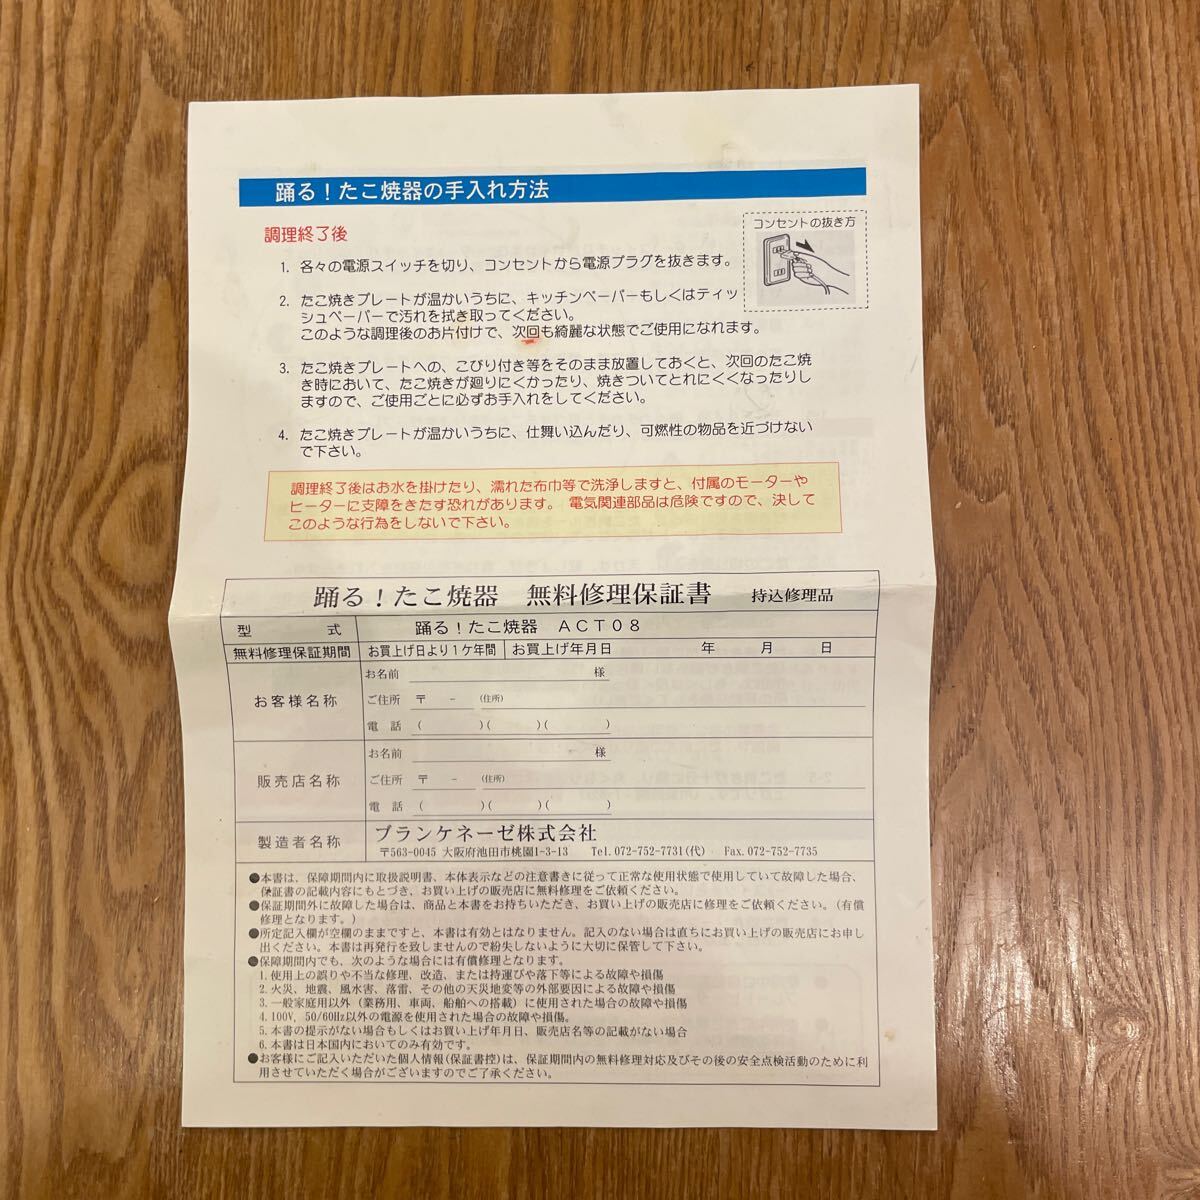 踊る！たこ焼器の手入れ方法
コンセントの抜き方
調理終了後
1. 各々の電源スイッチを切り、コンセントから電源プラグを抜きます。
2. たこ焼きプレートが温かいうちに、キッチンペーパーもしくはティッ
シュペーパーで汚れを拭き取ってください。
このような調理後のお片付けで、次回も綺麗な状態でご使用になれます。
3. たこ焼きプレートへの、こびり付き等をそのまま放置しておくと、次回のたこ焼
き時において、たこ焼きが廻りにくかったり、焼きついてとれにくくなったりし
ますので、ご使用ごとに必ずお手入れをしてください。
4. たこ焼きプレートが温かいうちに、仕舞い込んだり、可燃性の物品を近づけない
で下さい。
調理終了後はお水を掛けたり、濡れた布巾等で洗浄しますと、付属のモーターや
ヒーターに支障をきたす恐れがあります。 電気関連部品は危険ですので、決して
このような行為をしないで下さい。
踊る！たこ焼器 無料修理保証書 持込修理品
型 式 踊る！たこ焼器 ACT08
無料修理保証期間 お買上げ日より1ケ年間 お買上げ年月日 年 月 日
お客様名称
お名前 様
ご住所 〒 － (住所)
電 話 ( )( )( )
販売店名称
お名前 様
ご住所 〒 － (住所)
電 話 ( )( )( )
製造者名称 ブランケネーゼ株式会社
〒563-0045 大阪府池田市桃園1-3-13 Tel.072-752-7731(代) Fax.072-752-7735
●本書は、保障期間内に取扱説明書、本体表示などの注意書きに従って正常な使用状態で使用していて故障した場合、
保証書の記載内容にもとづき、お買い上げの販売店に無料修理をご依頼ください。
●保証期間外に故障した場合は、商品と本書をお持ちいただき、お買い上げの販売店に修理をご依頼ください。(有償
修理となります。)
●所定記入欄が空欄のままですと、本書は有効とはなりません。記入のない場合は直ちにお買い上げの販売店にお申し
出ください。本書は再発行を致しませんので紛失しないように大切に保管して下さい。
●保障期間内でも、次のような場合には有償修理となります。
1.使用上の誤りや不当な修理、改造、または持運びや落下等による故障や損傷
2.火災、地震、風水害、落雷、その他の天災地変等の外部要因による故障や損傷
3.一般家庭用以外(業務用、車両、船舶への搭載)に使用された場合の故障や損傷
4.100V, 50/60Hz以外の電源を使用された場合の故障や損傷。
5.本書の提示がない場合もしくはお買い上げ年月日、販売店名等の記載がない場合
6.本書は日本国内においてのみ有効です。
●お客様にご記入いただいた個人情報(保証書控)は、保証期間内の無料修理対応及びその後の安全点検活動のために利
用させていただく場合がございますのでご了承ください。